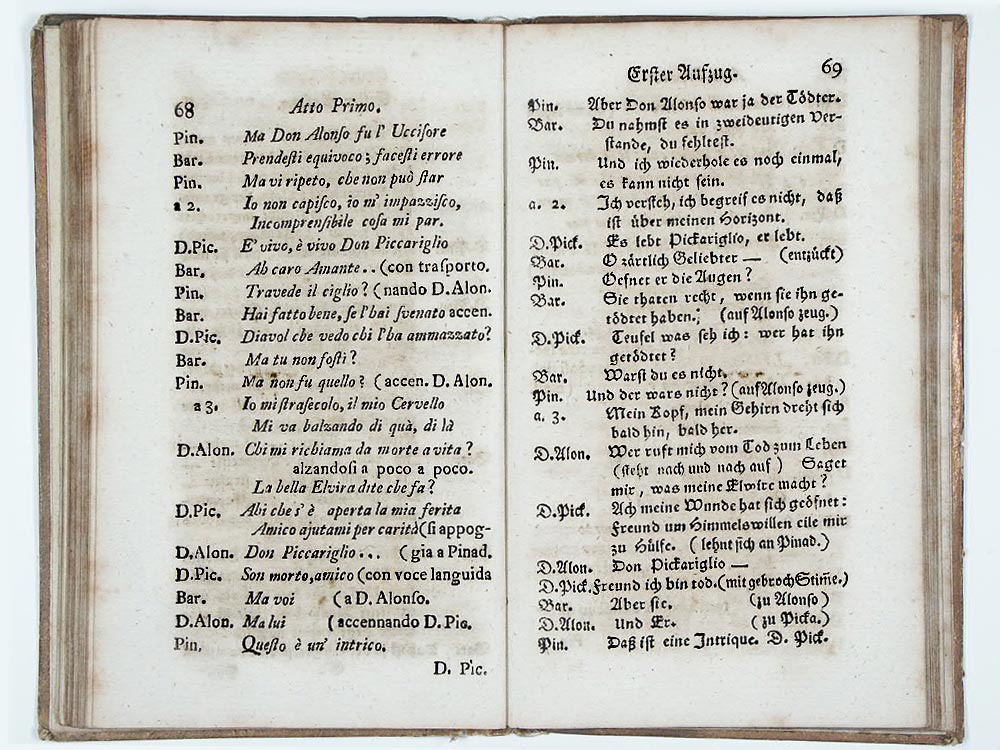 68 Atto Primo.
Pin. Ma Don Alonſo fu l' Ucciſore
Bar. Prendeſti equivoco; faceſti errore
Pin. Ma vi ripeto, che non può ſtar
a 2. Io non capiſco, io m' impazziſco,
Incomprenſibile coſa mi par.
D.Pic. E' vivo, è vivo Don Piccariglio
Bar. Ah caro Amante.. (con traſporto.
Pin. Travede il ciglio? (nando D.Alon.
Bar. Hai fatto bene, ſe l'hai ſvenato accen.
D.Pic. Diavol che vedo chi l'ha ammazzato?
Bar. Ma tu non foſti?
Pin. Ma non fu quello? (accen. D. Alon.
a 3. Io mi ſtraſecolo, il mio Cervello
Mi va balzando di quà, di là
D.Alon. Chi mi richiama da morte a vita?
alzandoſi a poco a poco.
La bella Elvira dite che fa?
D.Pic. Ahi che s' è aperta la mia ferita
Amico ajutami per carità (ſi appog-
D.Alon. Don Piccariglio... (gia a Pinad.
D.Pic. Son morto, amico (con voce languida
Bar. Ma voi (a D. Alonſo.
D.Alon. Ma lui (accennando D. Pic.
Pin. Queſto è un' intrico.
D. Pic.
Erſter Aufzug. 69
Pin. Aber Don Alonſo war ja der Tödter.
Bar. Du nahmſt es in zweideutigen Ver-
ſtande, du fehlteſt.
Pin. Und ich wiederhole es noch einmal,
es kann nicht ſein.
a. 2. Ich verſteh, ich begreif es nicht, daß
iſt über meinen Horizont.
D.Pick. Es lebt Pickariglio, er lebt.
Bar. O zärtlich Geliebter — (entzückt)
Pin. Oefnet er die Augen?
Bar. Sie thaten recht, wenn ſie ihn ge-
tödtet haben; (auf Alonſo zeug.)
D.Pick. Teufel was ſeh ich: wer hat ihn
getödtet?
Bar. Warſt du es nicht.
Pin. Und der wars nicht? (auf Alonſo zeug.)
a. 3. Mein Kopf, mein Gehirn dreht ſich
bald hin, bald her.
D.Alon. Wer ruft mich vom Tod zum Leben
(ſteht nach und nach auf) Saget
mir, was meine Elwire macht?
D.Pick. Ach meine Wunde hat ſich geöfnet:
Freund um Himmelswillen eile mir
zu Hülfe. (lehnt ſich an Pinad.)
D.Alon. Don Pickariglio —
D.Pick. Freund ich bin tod. (mit gebroch Stim̄e.)
Bar. Aber ſie. (zu Alonſo)
D.Alon. Und Er. (zu Picka.)
Pin. Daß iſt eine Intrique. D. Pick.